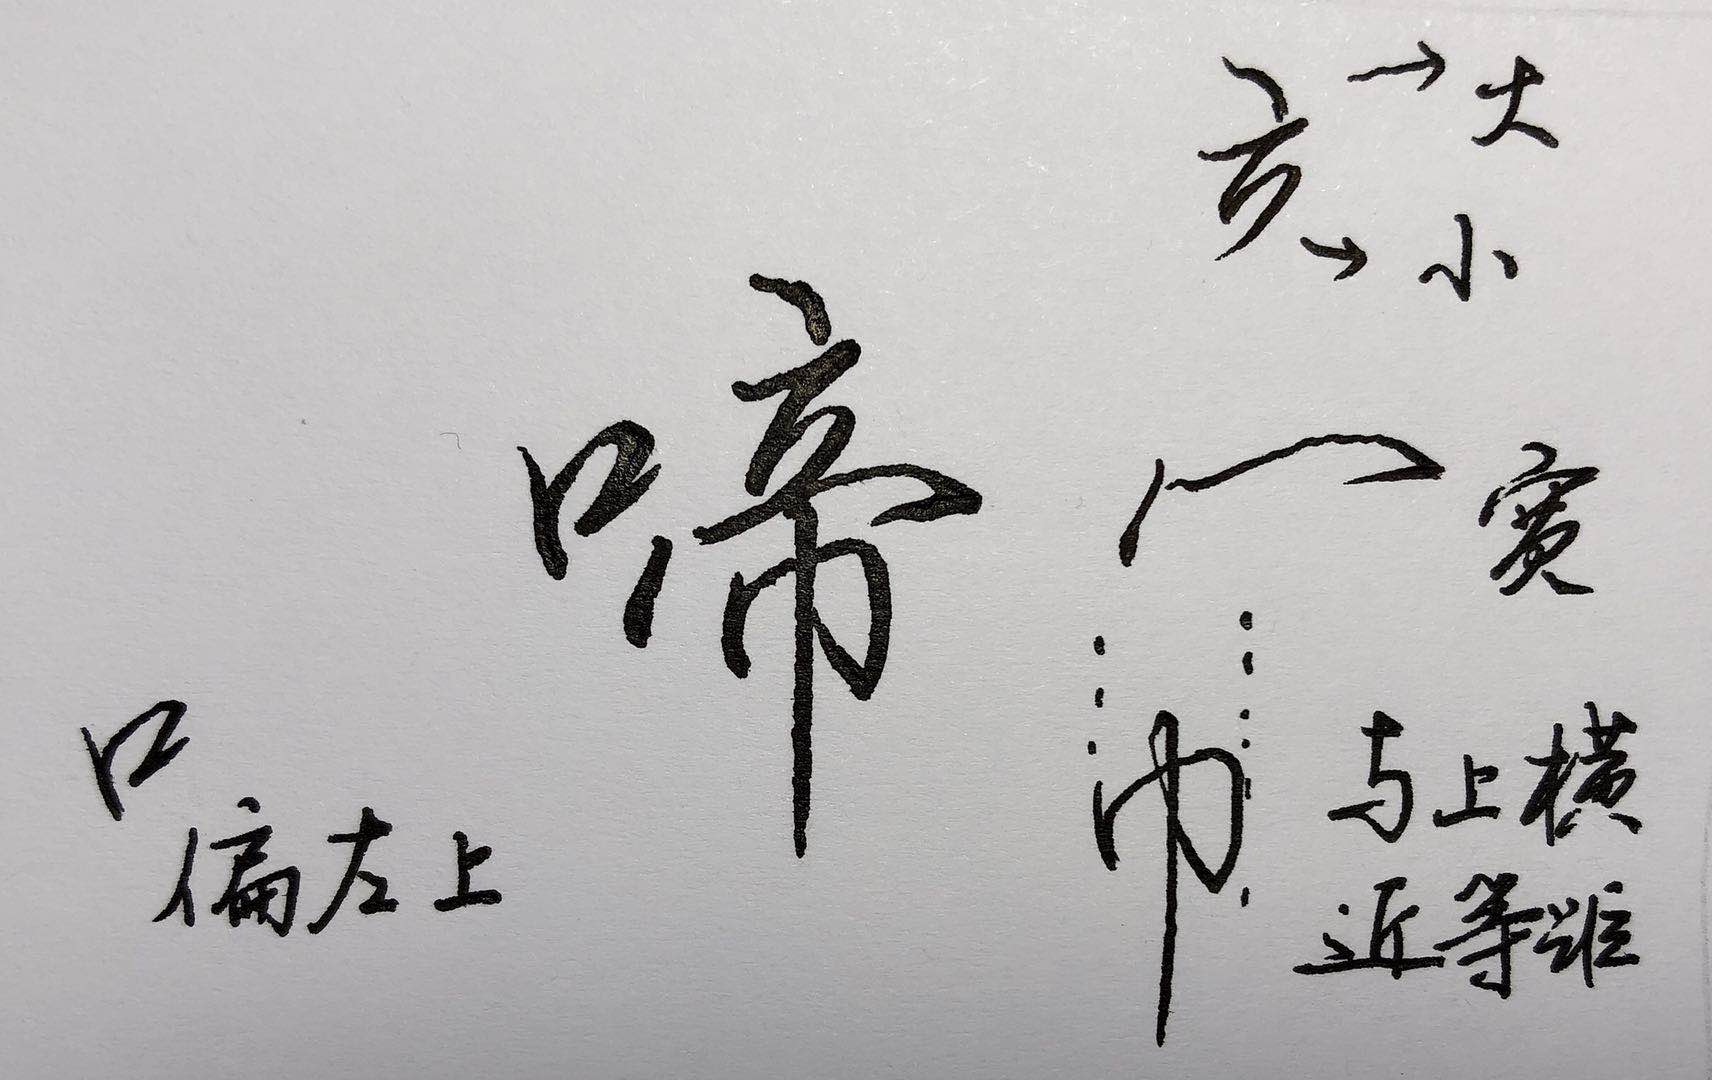 大
小
啼
冖 寬
口
偏左上
巾 与上横
近等距